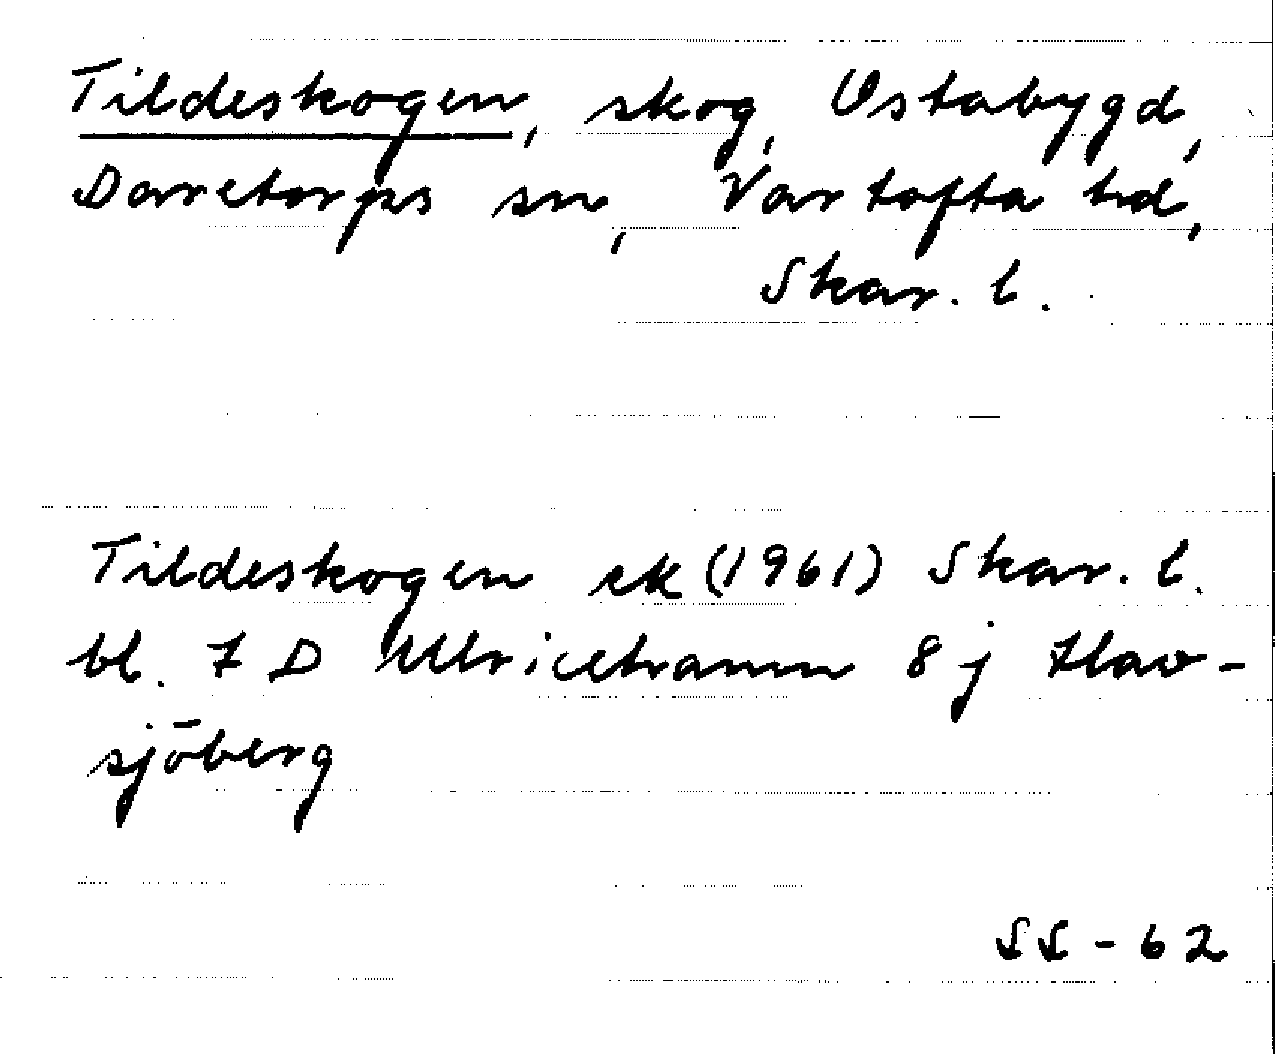 Tildeskogen, skog, Ustabygd,
Daretorps sn, Vartofta hd,
Skar. l.
Tildeskogen ek (1961) Skar. l.
bl. 7 D Ulricehamn 8 j Hav-
sjöberg
SS - 62